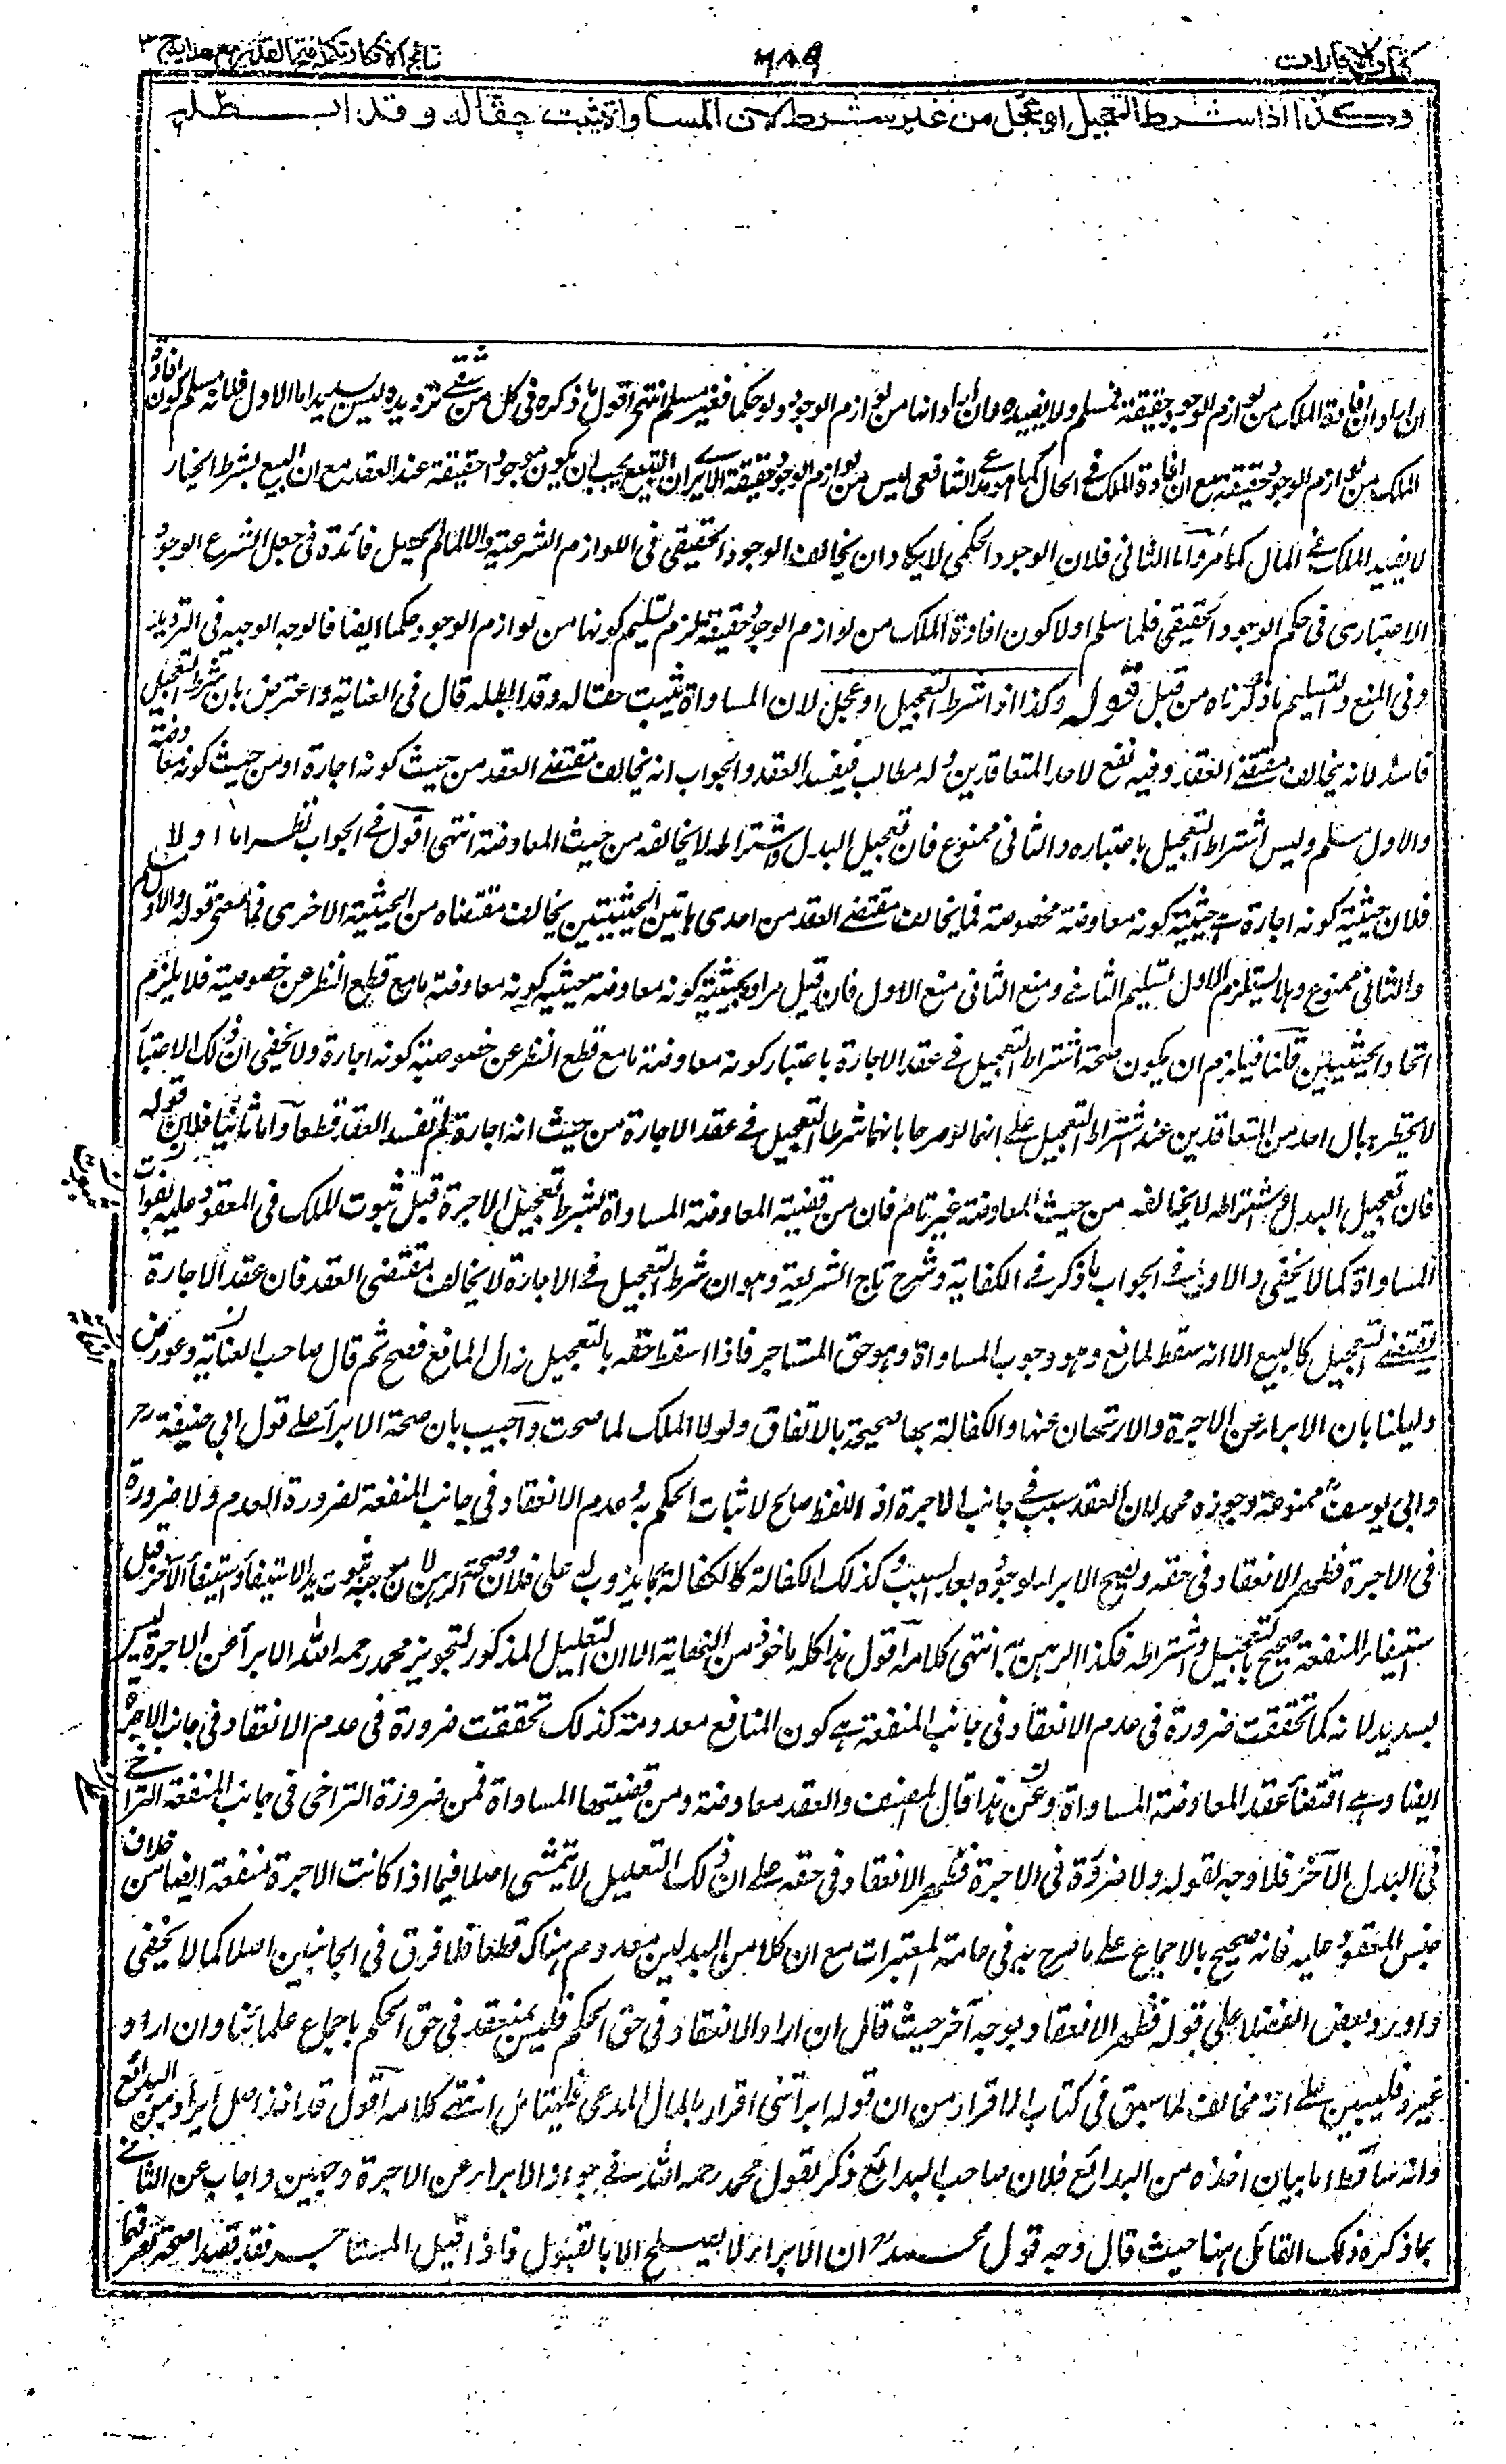 كتاب الاجارات
٦٨٩
نتائج الافكار تكملة فتح القدير مع هداية ج ٣
وكذا اذا شرط التعجيل او عجل من غير شرط لان المساواة يثبت حقا له وقد ابطله
ان اراد ان افادة الملك من لوازم الوجود حقيقة فمسلم ولا يفيده وان اراد انها من لوازم الوجود ولو حكما فغير مسلم انتهى اقول ما ذكره في كل من شقي ترديده ليس بسديد اما الاول فلانه مسلم كون افادة
الملك من لوازم الوجود حقيقة مع ان افادة الملك في الحال كما هو مدعى الشافعي ليس من لوازم الوجود حقيقة الا يرى ان البيع يجب ان يكون موجودا حقيقة عند العقد مع ان البيع بشرط الخيار
لا يفيد الملك في الحال كما مر واما الثاني فلان الوجود الحكمي لا يكاد ان يخالف الوجود الحقيقي في اللوازم الشرعية والا لما لم يحصل فائدة في جعل الشرع الوجود
الاعتباري في حكم الوجود الحقيقي فلما سلم اولا كون افادة الملك من لوازم الوجود حقيقة لزم تسليم كونها من لوازم الوجود حكما ايضا فالوجه الوجيه في الترديد
وفي المنع والتسليم ما ذكرناه من قبل قوله وكذا اذا شرط التعجيل او عجل لان المساواة يثبت حقا له وقد ابطله قال في العناية واعترض بان شرط التعجيل
فاسد لانه يخالف مقتضى العقد وفيه نفع لاحد المتعاقدين وله مطالب فيفسد العقد والجواب انه يخالف مقتضى العقد من حيث كونه اجارة او من حيث كونه معاوضة
والاول مسلم وليس اشتراط التعجيل باعتباره والثاني ممنوع فان تعجيل البدل واشتراطه لا يخالفه من حيث المعاوضة انتهى اقول في الجواب نظر اما اولا
فلان حيثية كونه اجارة هي حيثية كونه معاوضة مخصوصة فما يخالف مقتضى العقد من احدى هاتين الحيثيتين يخالف مقتضاه من الحيثية الاخرى فما معنى قوله والاول مسلم
والثاني ممنوع وهلا يستلزم الاول تسليم الثاني ومنع الثاني منع الاول فان قيل مراده بحيثية كونه معاوضة حيثية كونه معاوضة ما مع قطع النظر عن خصوصيته فلا يلزم
اتحاد الحيثيتين قلنا فيلزم ان يكون صحة اشتراط التعجيل في عقد الاجارة باعتبار كونه معاوضة ما مع قطع النظر عن خصوصية كونه اجارة ولا يخفى ان ذلك الاعتبار
لا يخطر ببال احد من المتعاقدين عند اشتراط التعجيل على انهما لو صرحا بانهما شرطا التعجيل في عقد الاجارة من حيث انه اجارة لم تفسد العقد قطعا واما ثانيا فلان قوله
فان تعجيل البدل واشتراطه لا يخالفه من حيث المعاوضة غير تام فان من قضية المعاوضة المساواة بشرط تعجيل الاجرة قبل ثبوت الملك في المعقود عليه يفوت
المساواة كما لا يخفى والاولى في الجواب ما ذكر في الكفاية وشرح تاج الشريعة وهو ان شرط التعجيل في الاجارة لا يخالف مقتضى العقد فان عقد الاجارة
يقتضى التعجيل كالبيع الا انه سقط لمانع وهو وجوب المساواة وهو حق المستاجر فاذا اسقط حقه بالتعجيل زال المانع فصح ثم قال صاحب العناية وعورض
دليلنا بان الابراء عن الاجرة والارتهان عنها والكفالة بها صحيحة بالاتفاق ولولا الملك لما صحت واجيب بان صحة الابراء على قول ابي حنيفة رح
وابي يوسف ممنوعة وجوزه محمد لان العقد سبب في جانب الاجرة اذ اللفظ صالح لاثبات الحكم به وعدم الانعقاد في جانب المنفعة لضرورة العدم ولا ضرورة
في الاجرة فظهر الانعقاد في حقه وتصح الابراء لوجوده بعد السبب وكذلك الكفالة كالكفالة بما يذوب له على فلان وصحة الرهن لان موجبه ثبوت يد الاستيفاء واستيفاء الاجر قبل
استيفاء المنفعة صحيح بالتعجيل واشتراطه فكذا الرهن به انتهى كلامه اقول هذا كله ماخوذ من النهاية الا ان التعليل المذكور لتجويز محمد رحمه الله الابراء عن الاجرة ليس
بسديد لانه كما تحققت ضرورة في عدم الانعقاد في جانب المنفعة هي كون المنافع معدومة كذلك تحققت ضرورة في عدم الانعقاد في جانب الاجرة
ايضا وهي اقتضاء عقد المعاوضة المساواة وعن هذا قال المصنف والعقد معاوضة ومن قضيتها المساواة فمن ضرورة التراخي في جانب المنفعة التراخي
في البدل الآخر فلا وجه لقوله ولا ضرورة في الاجرة فظهر الانعقاد في حقه على ان ذلك التعليل لا يتمشى اصلا فيما اذا كانت الاجرة منفعة ايضا من خلاف
جنس المعقود عليه فانه صحيح بالاجماع على ما صرح به في عامة المعتبرات مع ان كلا من البدلين معدوم هناك قطعا فلا فرق في الجانبين اصلا كما لا يخفى
واورد بعض الفضلاء على قوله فظهر الانعقاد بوجه آخر حيث قال ان اراد الانعقاد في حق الحكم فليس بمنعقد في حق الحكم باجماع علمائنا وان اراد
غيره فليبين على انه مخالف لما سبق في كتاب الاقرار من ان قوله ابراتني اقرار بالمال المدعى فليتامل انتهى كلامه اقول قد اخذ اصل ايراده من البدائع
وانه ساقط اما بيان اخذه من البدائع فلان صاحب البدائع ذكر لقول محمد رحمه الله في جواز الابراء عن الاجرة وجهين واجاب عن الثاني
بما ذكره ذلك القائل هنا حيث قال وجه قول محمد رح ان الابراء لا يصلح الا بالقبول فاذا قبل المستاجر فقد قصدا صحة تصرفهما